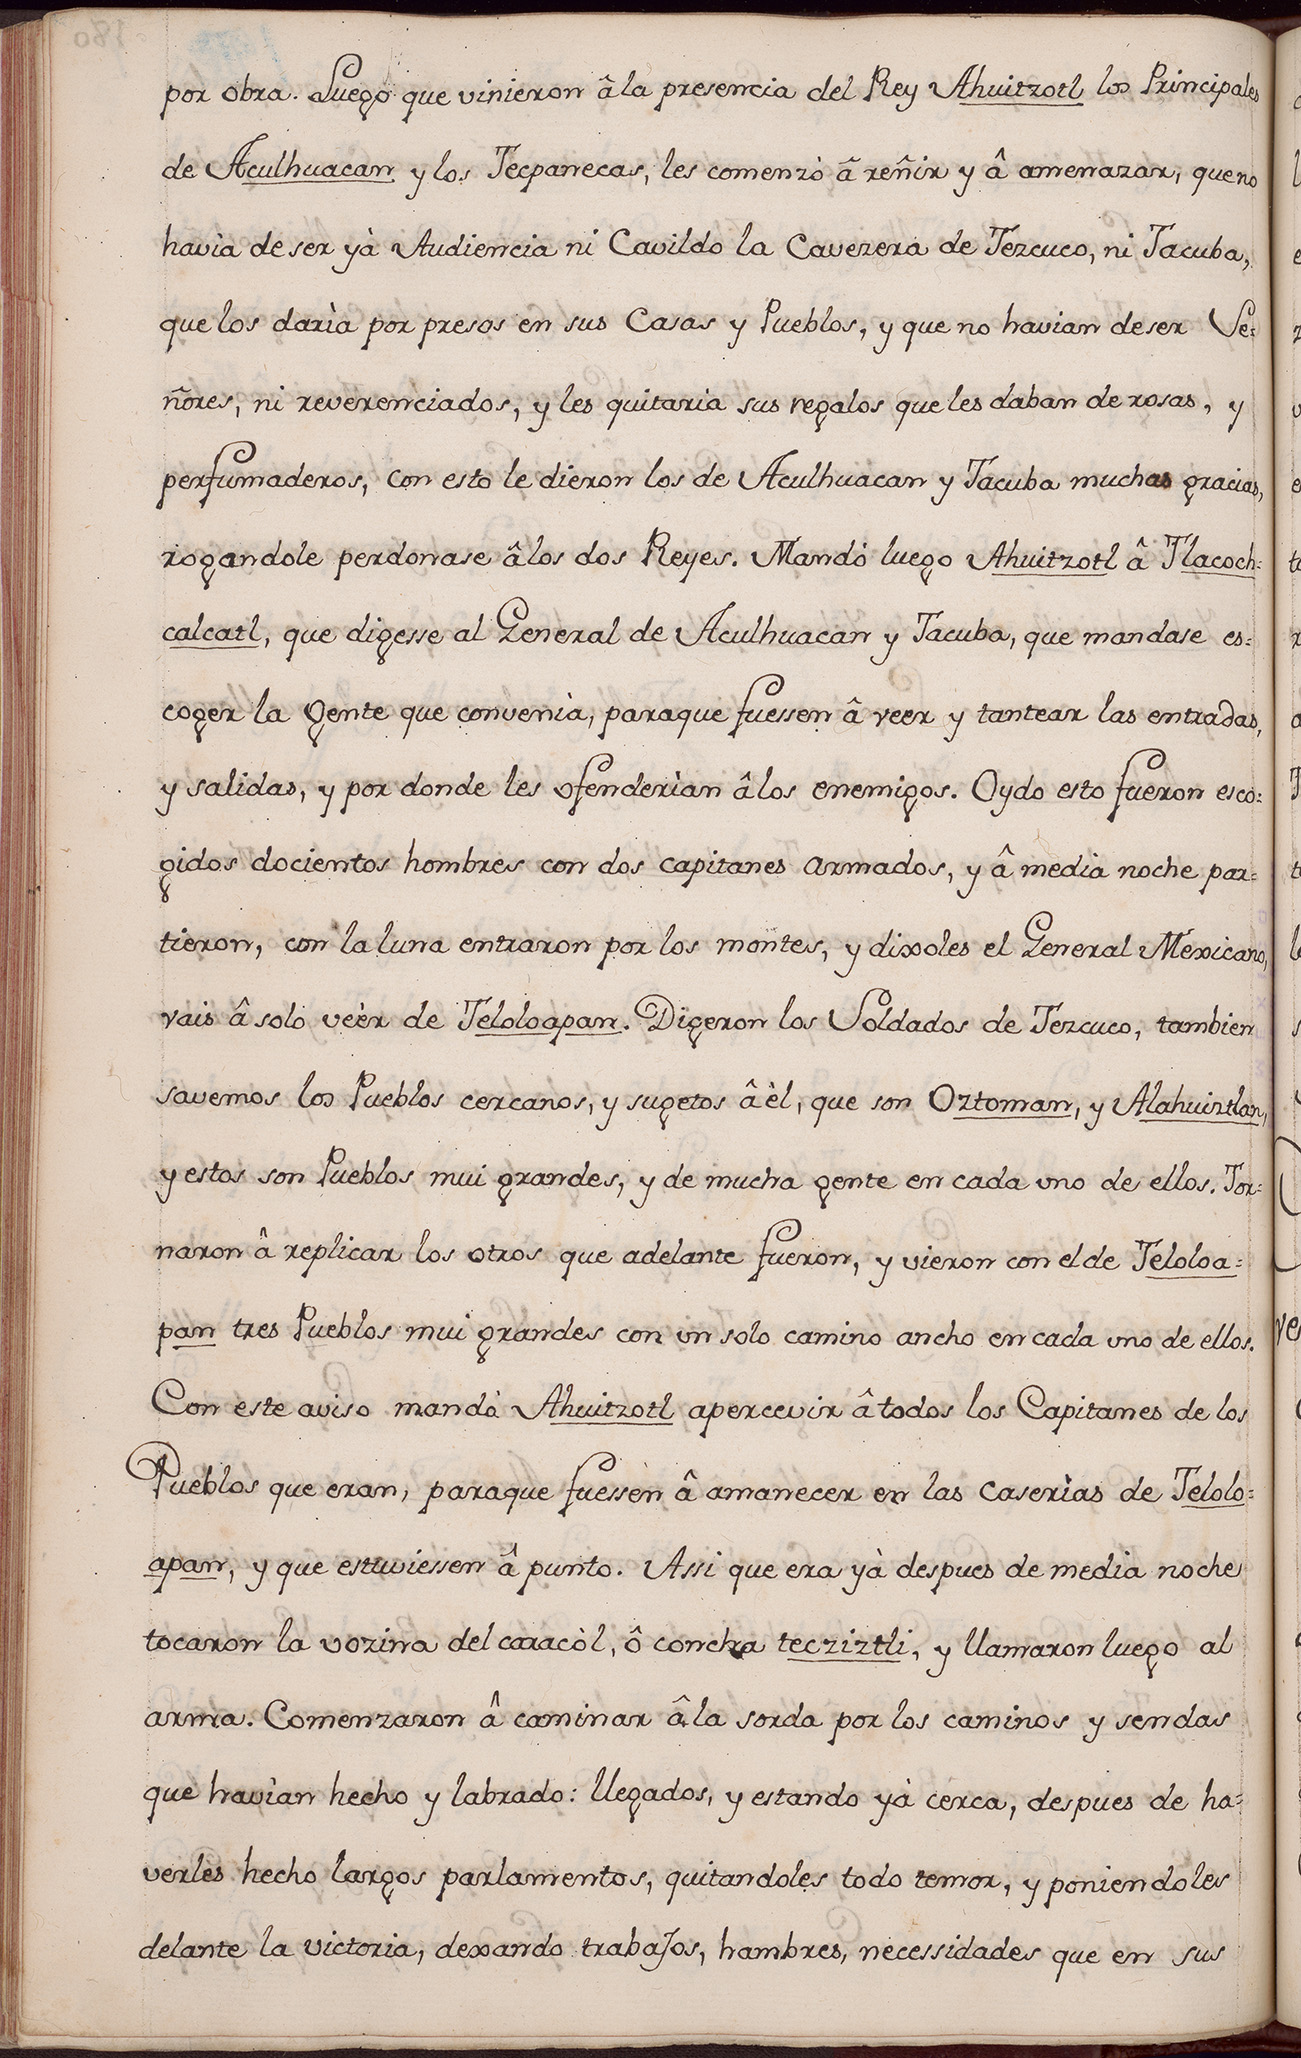 por obra. Luego que vinieron â la presencia del Rey Ahuitzotl los Principales
de Aculhuacan y los Tecpanecas, les comenzò â reñir y â amenazar, que no
havia de ser yà Audiencia ni Cavildo la Cavezera de Tezcuco, ni Tacuba,
que los darìa por presos en sus Casas y Pueblos, y que no havian de ser Se=
ñores, ni reverenciados, y les quitaria sus regalos que les daban de rosas, y
perfumaderos, con esto le dieron los de Aculhuacan y Tacuba muchas gracias,
rogandole perdonase â los dos Reyes. Mandò luego Ahuitzotl â Tlacoch=
calcatl, que digesse al General de Aculhuacan y Tacuba, que mandase es=
coger la gente que convenìa, paraque fuessen â veer y tantear las entradas,
y salidas, y por donde les ofenderìan â los enemigos. Oydo esto fueron esco=
gidos docientos hombres con dos capitanes armados, y â media noche par=
tieron, con la luna entraron por los montes, y dixoles el General Mexicano,
vais â solo veèr de Teloloapan. Digeron los Soldados de Tezcuco, tambien
savemos los Pueblos cercanos, y sugetos â èl, que son Oztoman, y Alahuiztlan,
y estos son Pueblos mui grandes, y de mucha gente en cada uno de ellos. Tor=
naron â replicar los otros que adelante fueron, y vieron con el de Teloloa=
pan tres Pueblos mui grandes con un solo camino ancho en cada uno de ellos.
Con este aviso mandò Ahuitzotl apercevir â todos los Capitanes de los
Pueblos que eran, paraque fuessen â amanecer en las caserìas de Telolo=
apan, y que estuviessen â punto. Assi que era yà despues de media noche
tocaron la vozina del caracòl, ô concha tecziztli, y llamaron luego al
arma. Comenzaron â caminar â la sorda por los caminos y sendas
que havian hecho y labrado: llegados, y estando yà cerca, despues de ha=
verles hecho largos parlamentos, quitandoles todo temor, y poniendoles
delante la victoria, dexando trabajos, hambres, necessidades que en sus